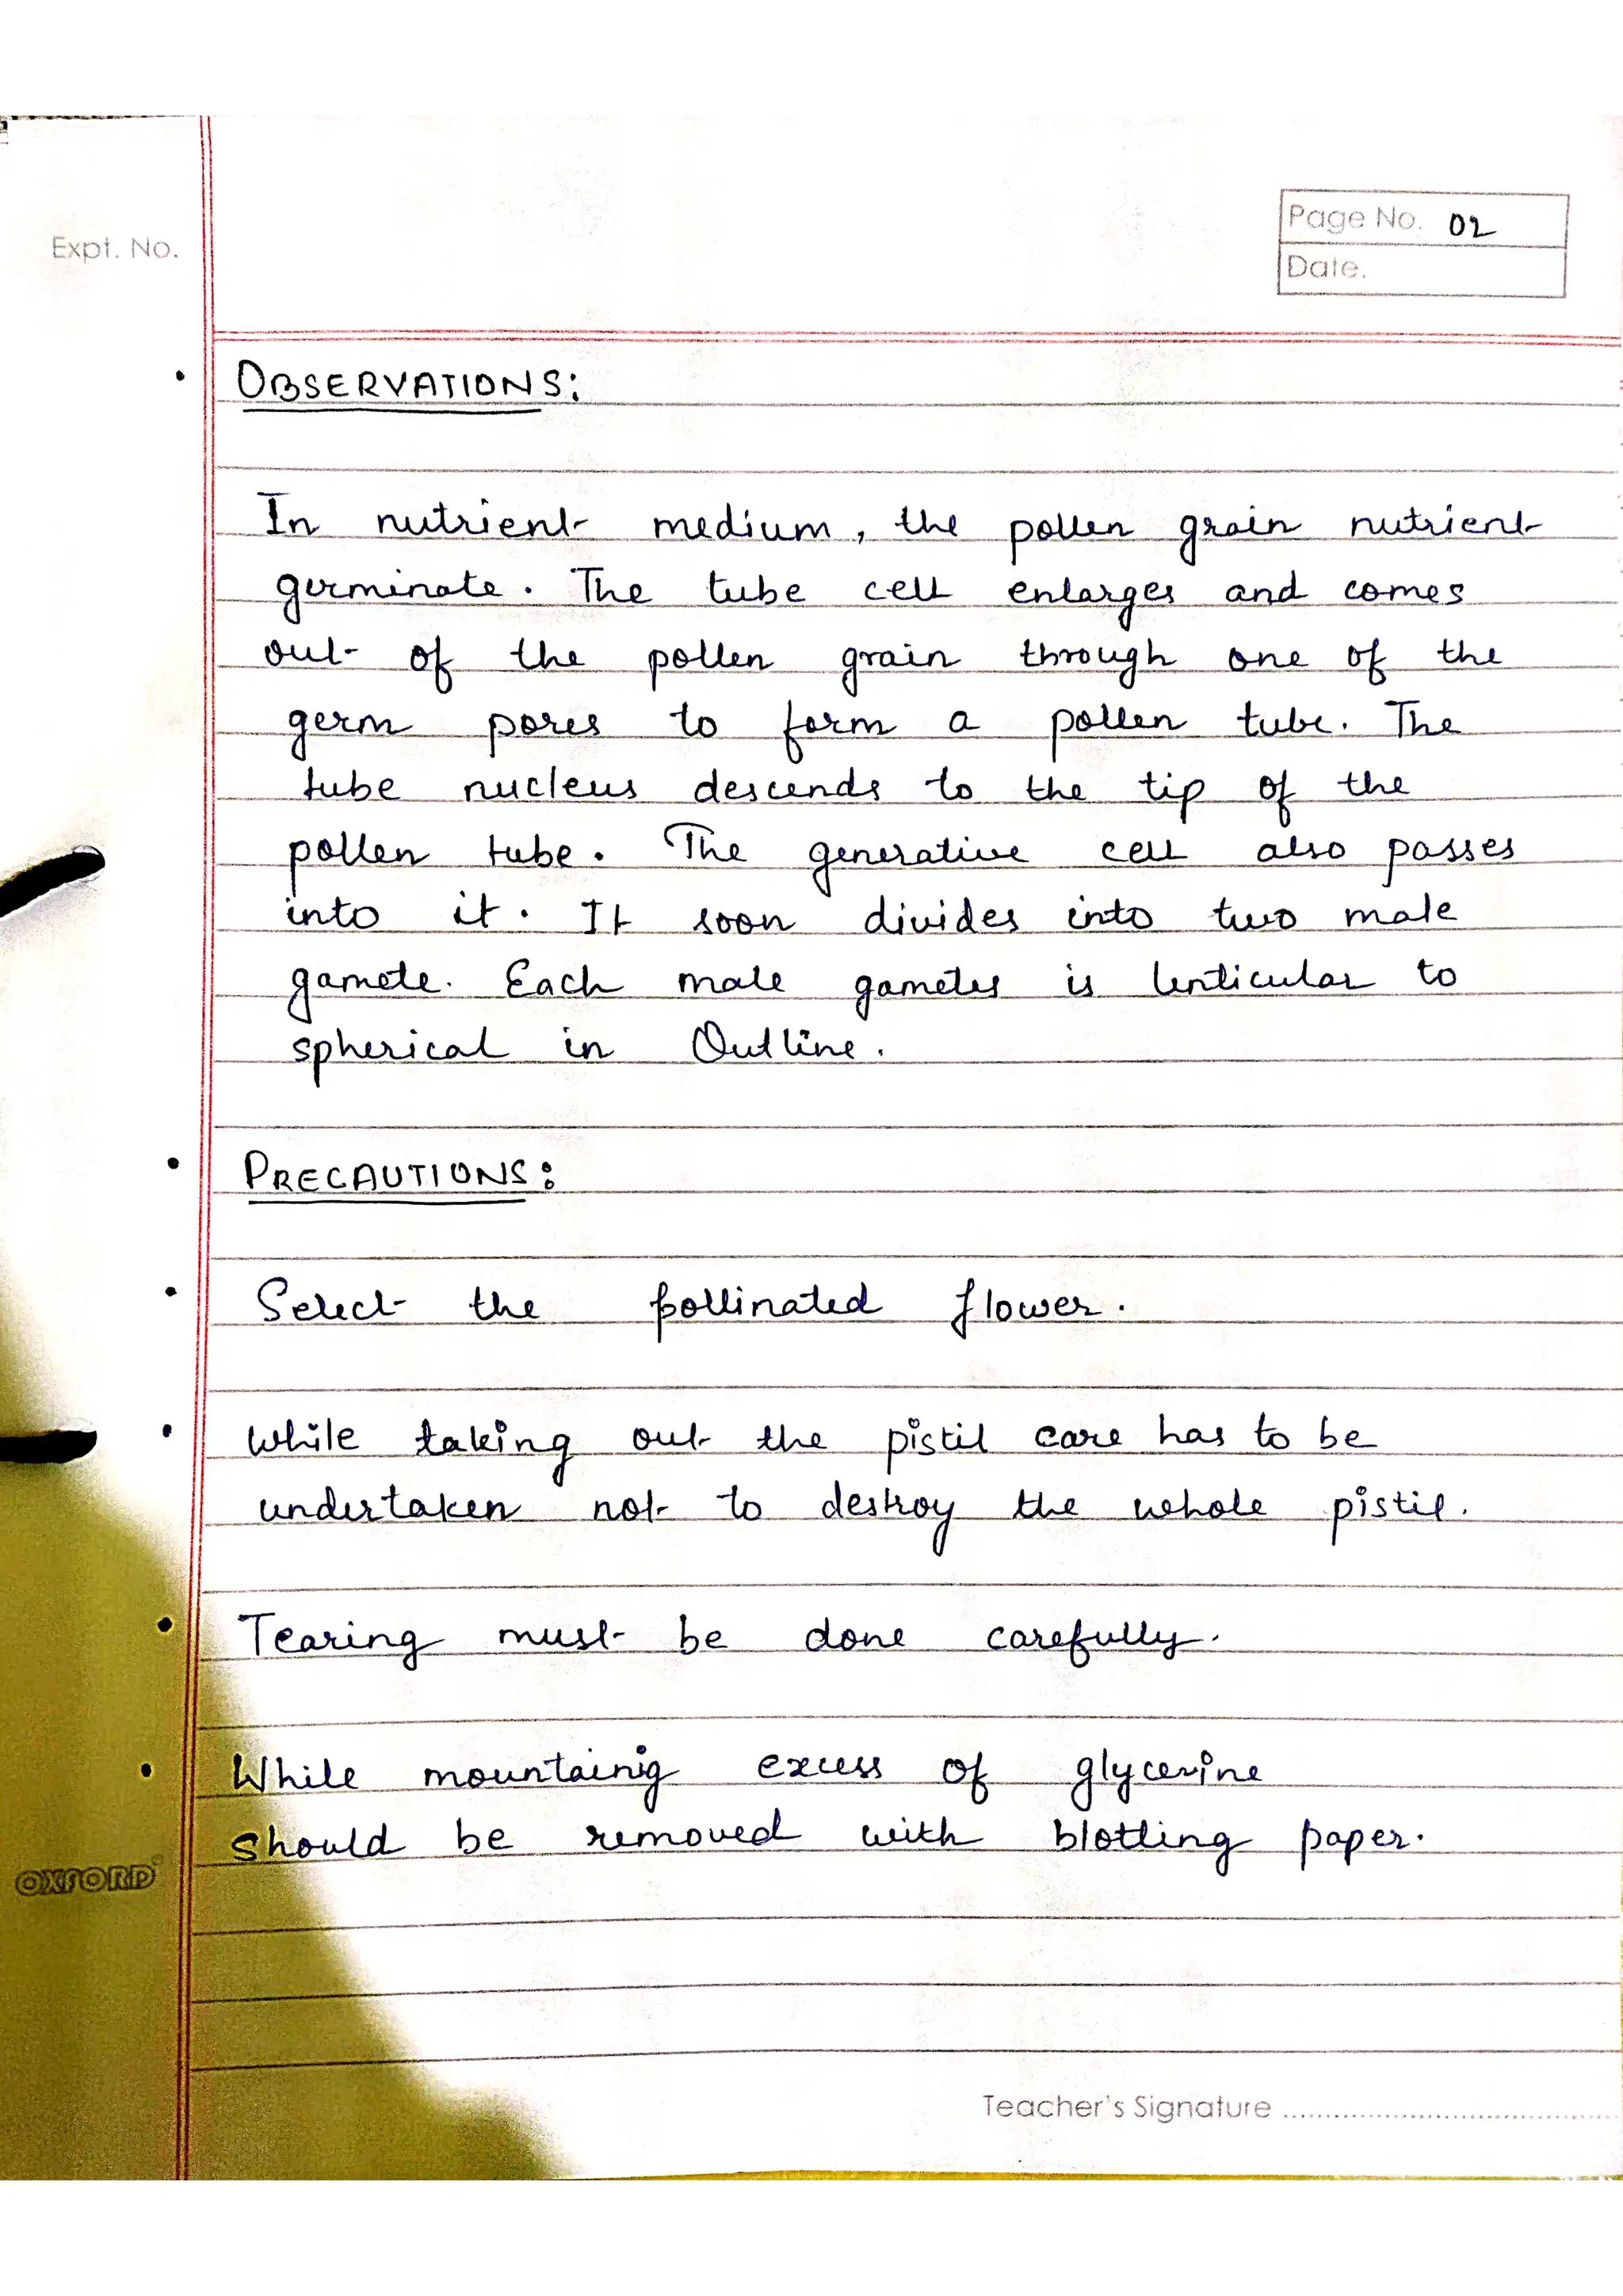 Page No. 02
Expt. No.
Date.
• OBSERVATIONS:
In nutrient medium, the pollen grain nutrient
germinate. The tube cell enlarges and comes
out of the pollen grain through one of the
germ pores to form a pollen tube. The
tube nucleus descends to the tip of the
pollen tube. The generative cell also passes
into it. It soon divides into two male
gamete. Each male gametes is lenticular to
spherical in Outline.
• PRECAUTIONS:
• Select the pollinated flower.
• While taking out the pistil care has to be
undertaken not to destroy the whole pistil.
• Tearing must be done carefully.
• While mountainig excess of glycerine
should be removed with blotting paper.
OXFORD
Teacher's Signature